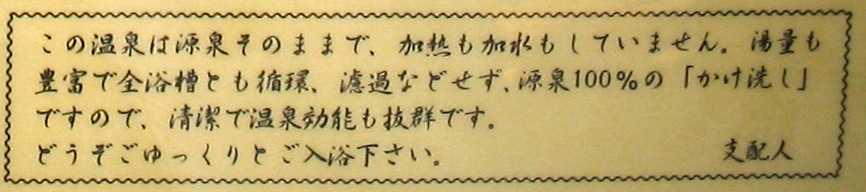 この温泉は源泉そのままで、加熱も加水もしていません。湯量も
豊富で全浴槽とも循環、濾過などせず、源泉100%の「かけ洗し」
ですので、清潔で温泉効能も抜群です。
どうぞごゆっくりとご入浴下さい。 支配人